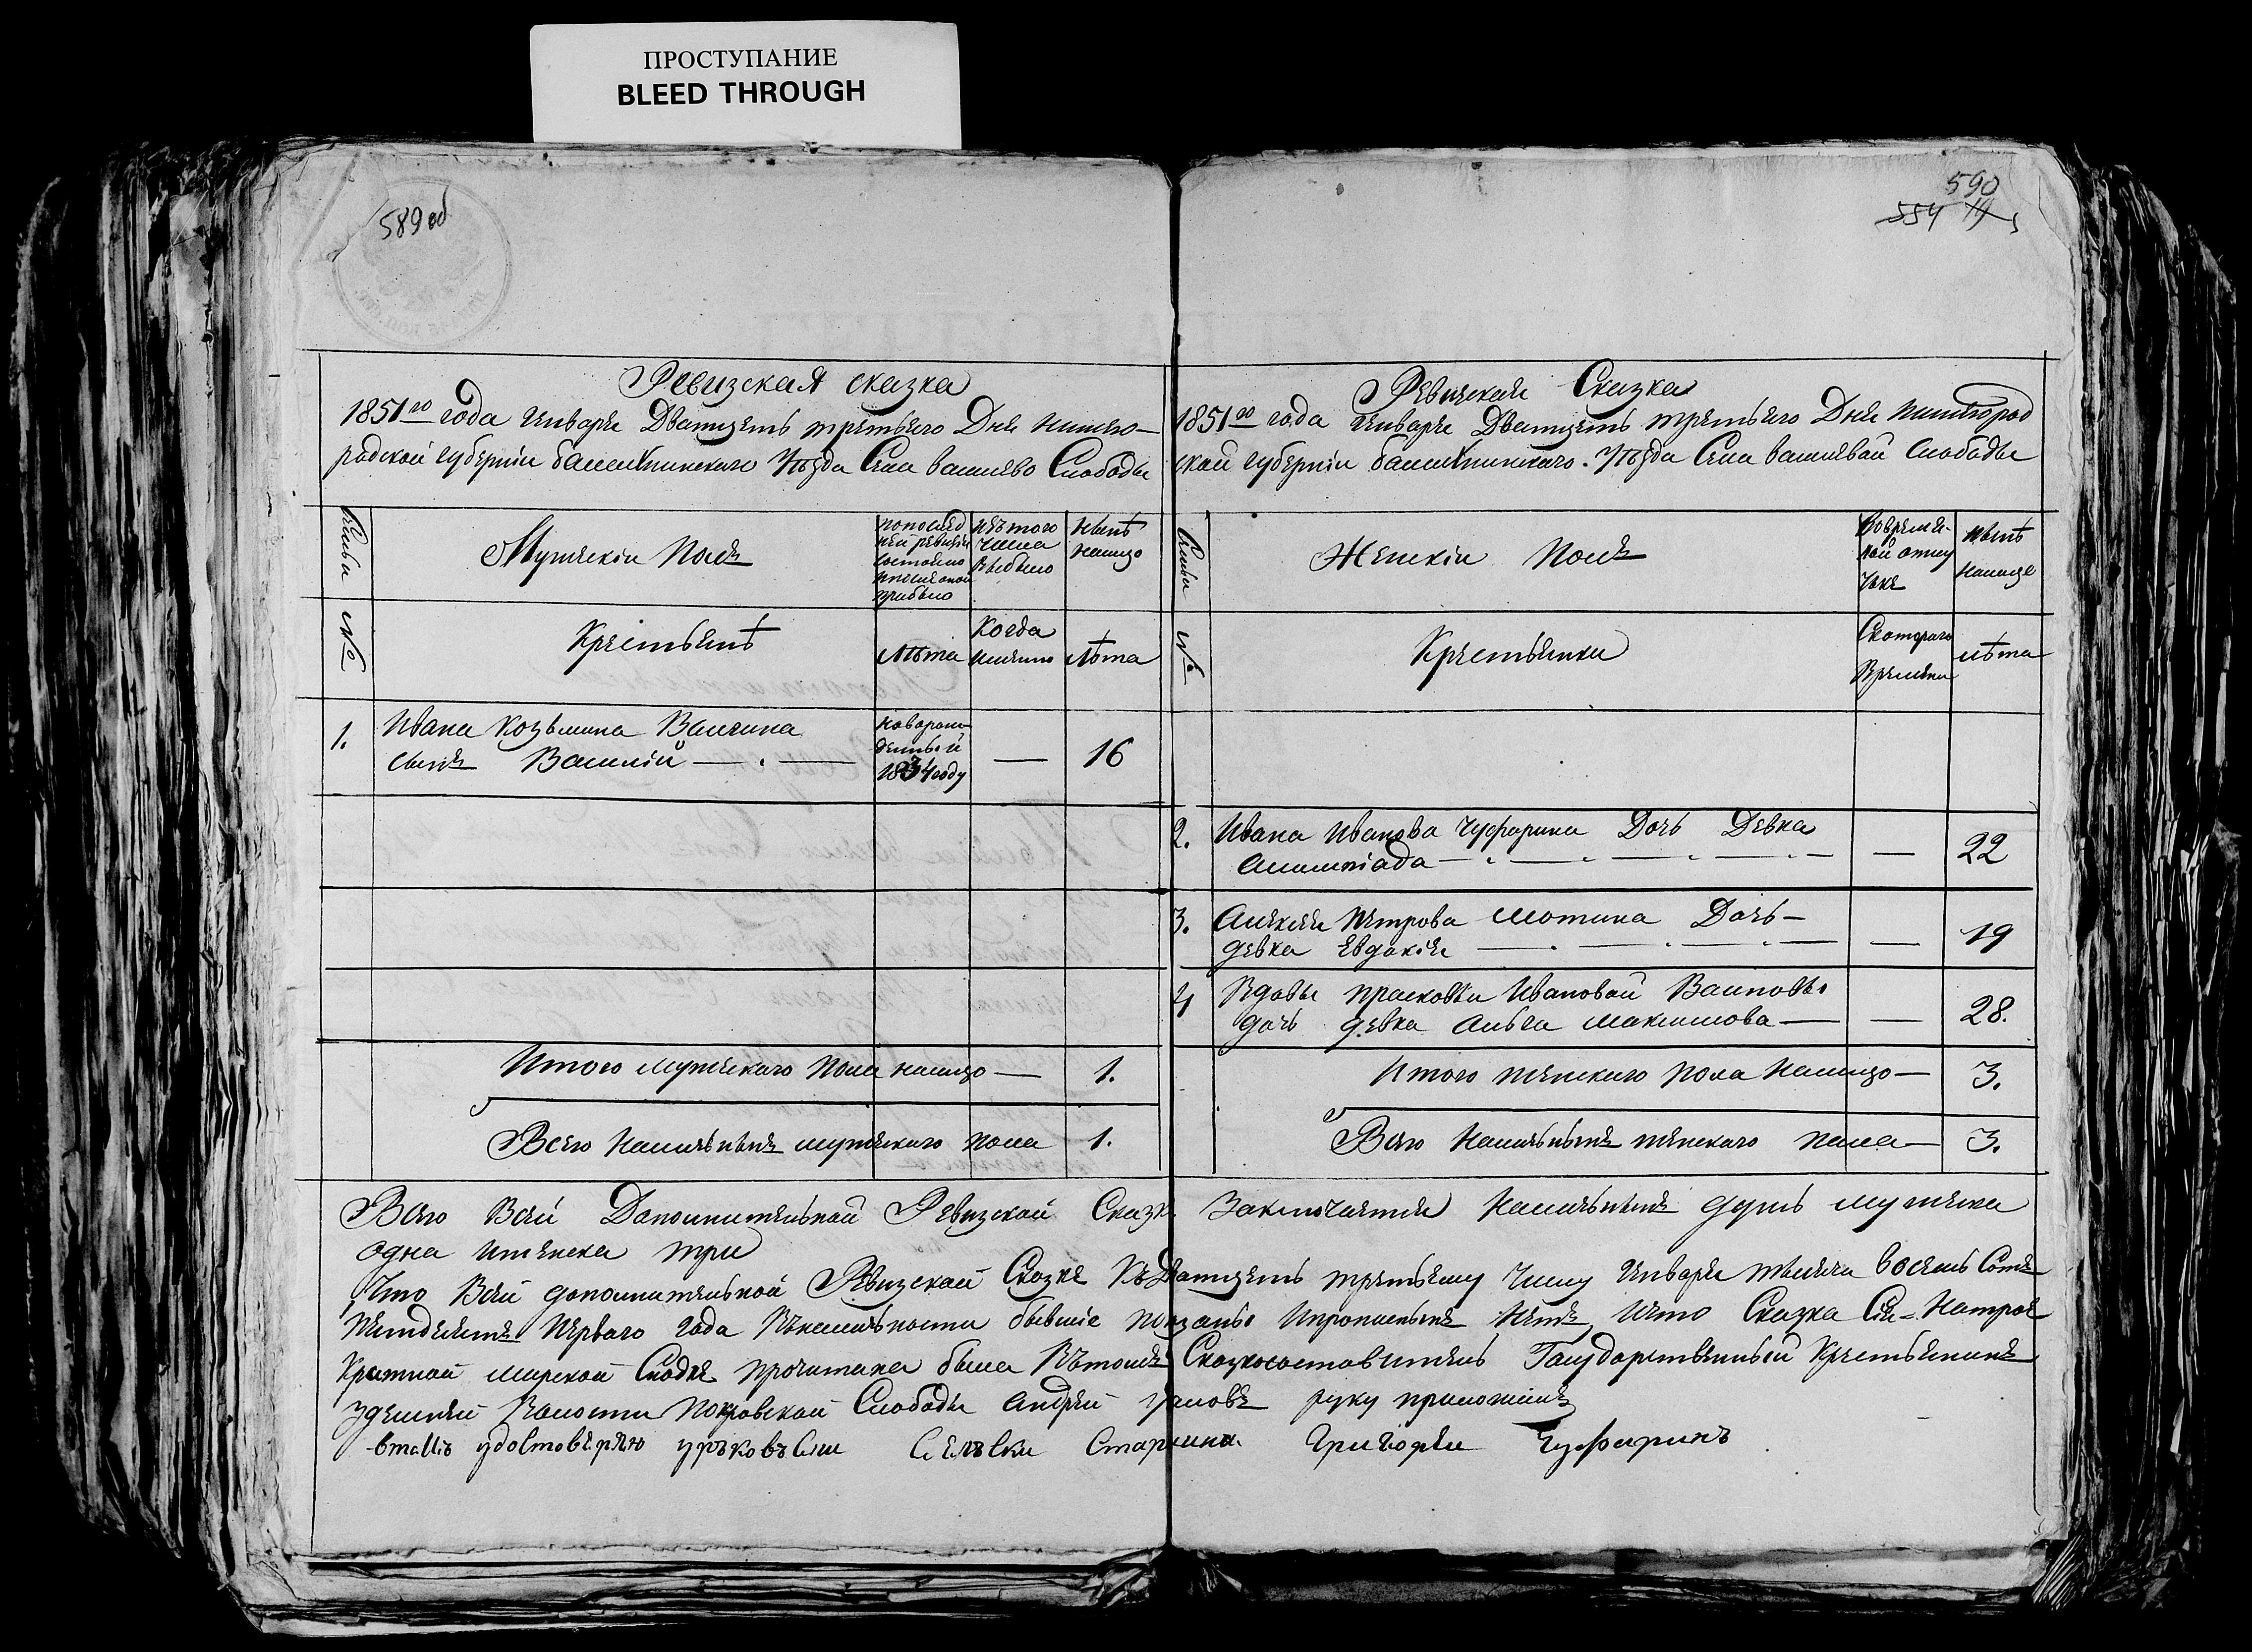 ПРОСТУПАНИЕ
BLEED THROUGH
589 об
Ревизская сказка
1851го года Генваря Дватцеть третьяго Дня нижего-
родской губернии балахнинскаго Уезда Села василево Слободы
Семьи
Мужескiй Полъ
по послед
ней ревизiи
состояло
и после оной
прибыло
изъ того
числа
выбыло
Ныне
налицо
№
Крестьянѣ
Лѣта
Когда
имянно
лѣта
1.
Ивана Козьмина Валчина
сынъ Василiй
Новорож
денный
1834 году
—
16
Итого мужескаго Пола налицо — 1.
Всего Наличныхъ мужескаго пола 1.
590
554
Ревизская Сказка
1851го года Генваря Дватцеть третьяго Дня нижегород
ской губернiи балахнинскаго Уезда Села василевой слободы
Семьи
Женскiй Полъ
Вовремен-
ной отлу
чке
Ныне
налицо
№
Крестьянки
Скотораго
Времени
лѣта
2. Ивана Иванова Чуфарина Дочь Девка
Алимпiада — 22
3. Алексея Петрова Мотина Дочь —
девка Евдокiя — 19
4 Вдовы прасковьи Ивановой
дочь девка Ольга Максимова — 28.
Итого женскаго пола Налицо — 3.
Всего Наличныхъ женскаго пола — 3.
Всего Всей Дополнительной Ревизской Сказк Заключается Наличныхъ душъ мужеска
одна иженска три
Что Всей дополнительной Ревизской Сказке Къ Дватцеть третьему Числу Генваря тысяча восемь Сотъ
Петдесятъ Перваго Года Вналичности бывшiе показаны Ипрописныхъ Нетъ, Ичто Сказка Сiя Натрое
Кратной мирской Сходке прочитана была Втомъ Сказкосоставитель Государственный Крестьянинъ
здешней Волости Покровской Слободы Андрей руку приложилъ
втомъ удостоверяю Сельски Старшина Григорей Чуфаринъ